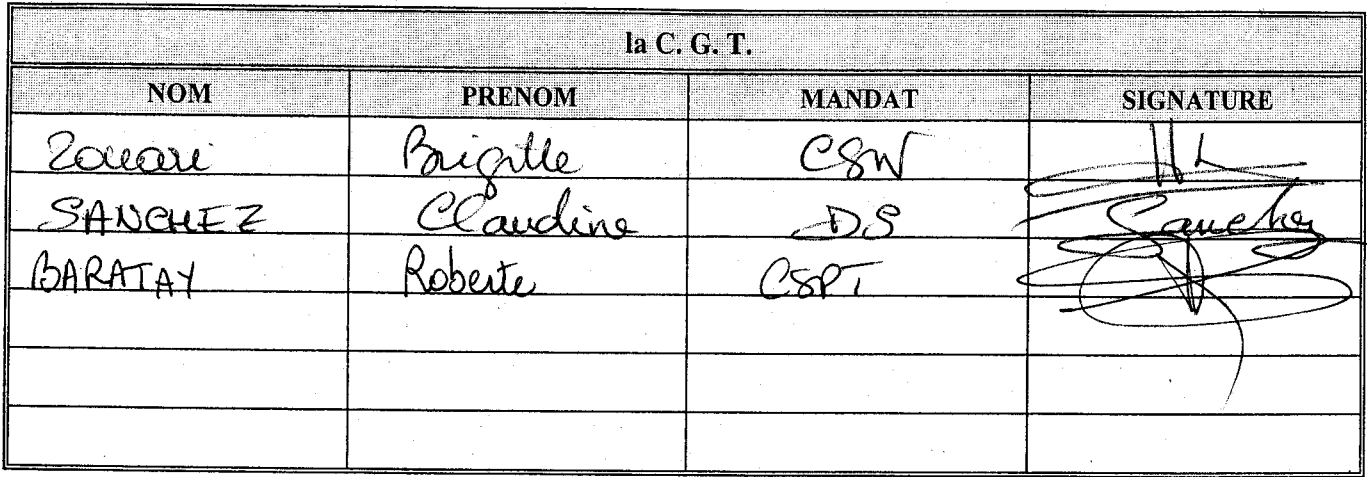 la C. G. T.
NOM PRENOM MANDAT SIGNATURE
Zouari Brigitte CSN
SANCHEZ Claudine DS Sanchez
BARATAY Roberte CSPT